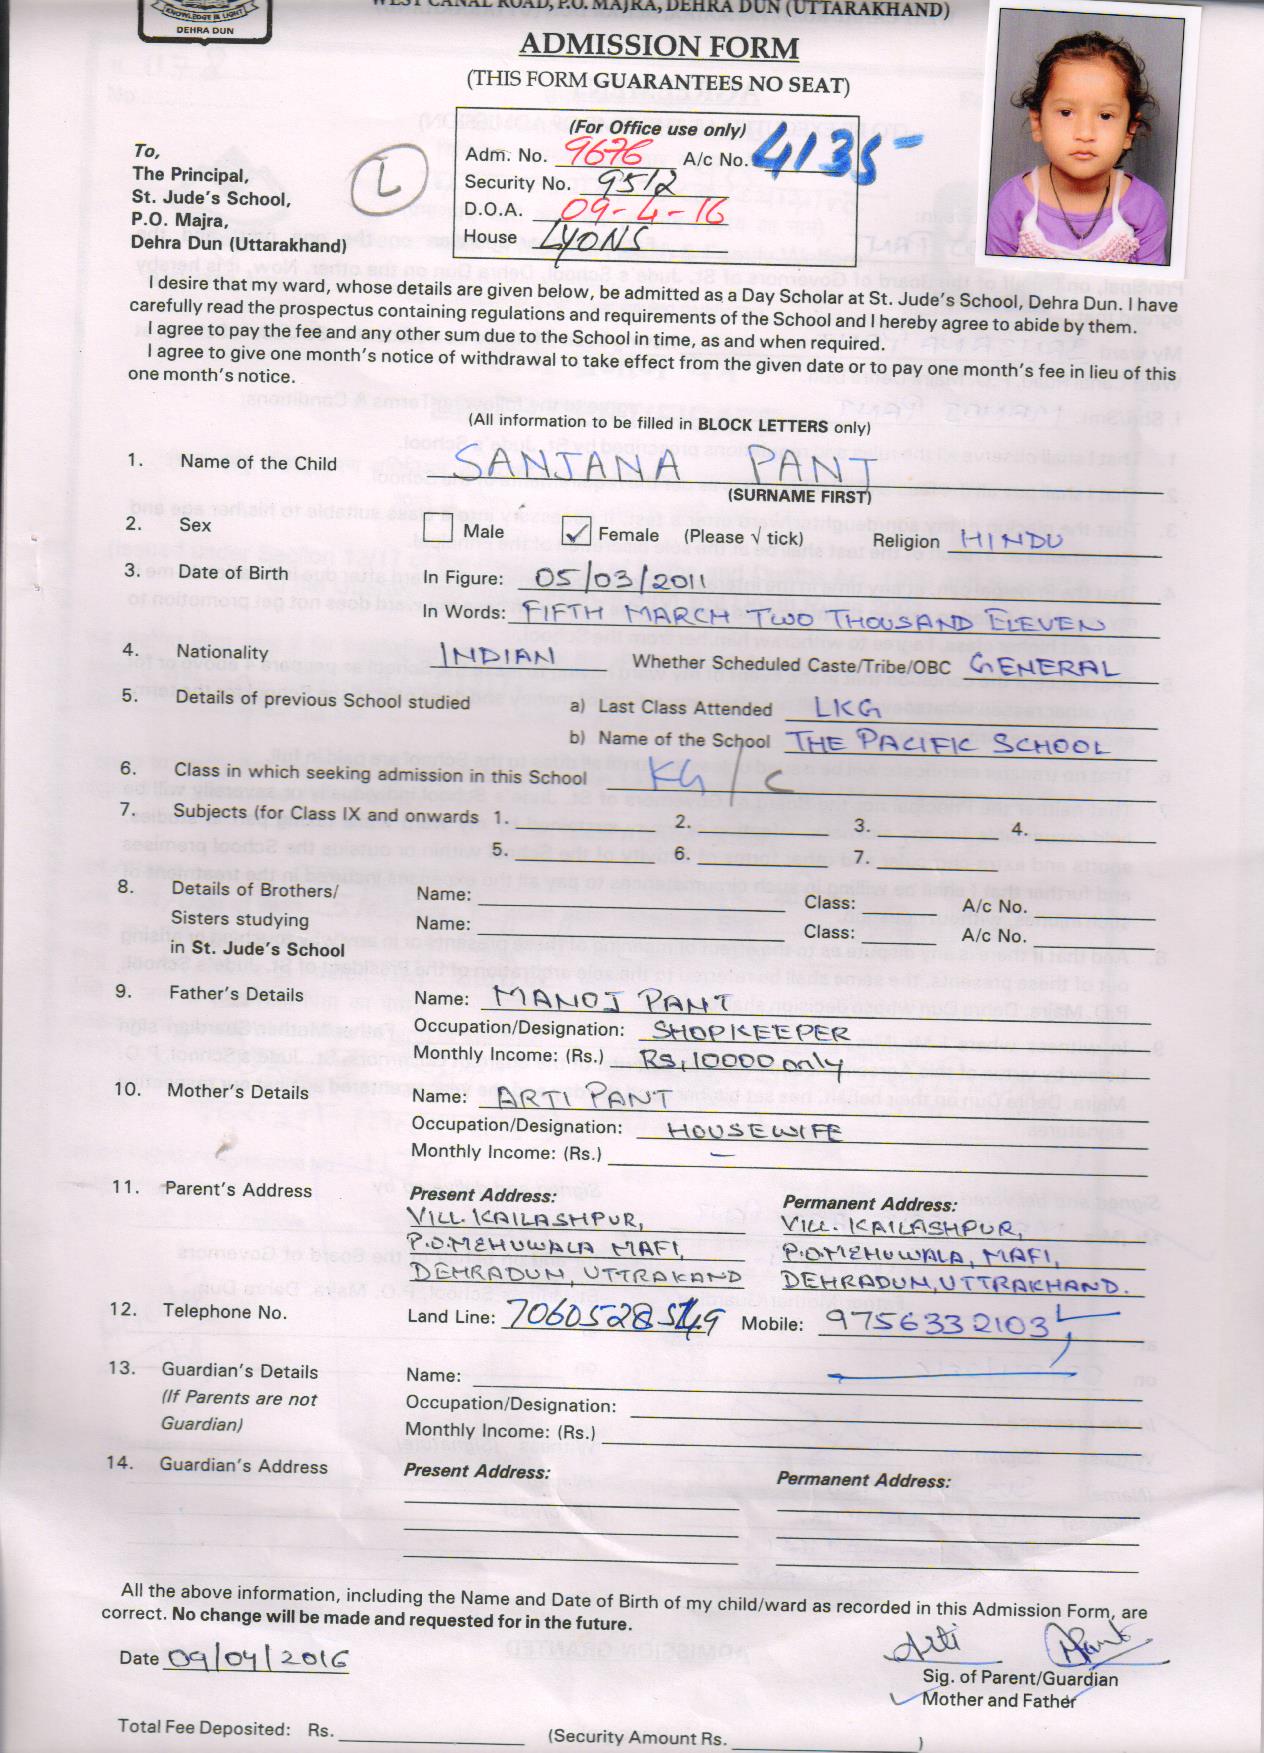 KNOWLEDGE IS LIGHT
DEHRA DUN
WEST CANAL ROAD, P.O. MAJRA, DEHRA DUN (UTTARAKHAND)
ADMISSION FORM
(THIS FORM GUARANTEES NO SEAT)
(For Office use only)
Adm. No. 9676 A/c No. 4135-
Security No. 9512
D.O.A. 09-4-16
House LYONS
L
To,
The Principal,
St. Jude's School,
P.O. Majra,
Dehra Dun (Uttarakhand)
I desire that my ward, whose details are given below, be admitted as a Day Scholar at St. Jude's School, Dehra Dun. I have
carefully read the prospectus containing regulations and requirements of the School and I hereby agree to abide by them.
I agree to pay the fee and any other sum due to the School in time, as and when required.
I agree to give one month's notice of withdrawal to take effect from the given date or to pay one month's fee in lieu of this
one month's notice.
(All information to be filled in BLOCK LETTERS only)
1. Name of the Child SANJANA PANT
(SURNAME FIRST)
2. Sex Male ✓ Female (Please √ tick) Religion HINDU
3. Date of Birth In Figure: 05/03/2011
In Words: FIFTH MARCH TWO THOUSAND ELEVEN
4. Nationality INDIAN Whether Scheduled Caste/Tribe/OBC GENERAL
5. Details of previous School studied a) Last Class Attended LKG
b) Name of the School THE PACIFIC SCHOOL
6. Class in which seeking admission in this School KG/C
7. Subjects (for Class IX and onwards 1. 2. 3. 4.
5. 6. 7.
8. Details of Brothers/ Name: Class: A/c No.
Sisters studying Name: Class: A/c No.
in St. Jude's School
9. Father's Details Name: MANOJ PANT
Occupation/Designation: SHOPKEEPER
Monthly Income: (Rs.) Rs, 10000 only
10. Mother's Details Name: ARTI PANT
Occupation/Designation: HOUSEWIFE
Monthly Income: (Rs.) –
11. Parent's Address Present Address: Permanent Address:
VILL. KAILASHPUR, VILL. KAILASHPUR,
P.O.MEHUWALA MAFI, P.O.MEHUWALA, MAFI,
DEHRADUN, UTTRAKAND DEHRADUN, UTTRAKHAND.
12. Telephone No. Land Line: Mobile: 9756332103
13. Guardian's Details Name:
(If Parents are not Occupation/Designation:
Guardian) Monthly Income: (Rs.)
14. Guardian's Address Present Address: Permanent Address:
All the above information, including the Name and Date of Birth of my child/ward as recorded in this Admission Form, are
correct. No change will be made and requested for in the future.
Arti
Date 09/04/2016
Sig. of Parent/Guardian
Mother and Father
Total Fee Deposited: Rs. (Security Amount Rs. )